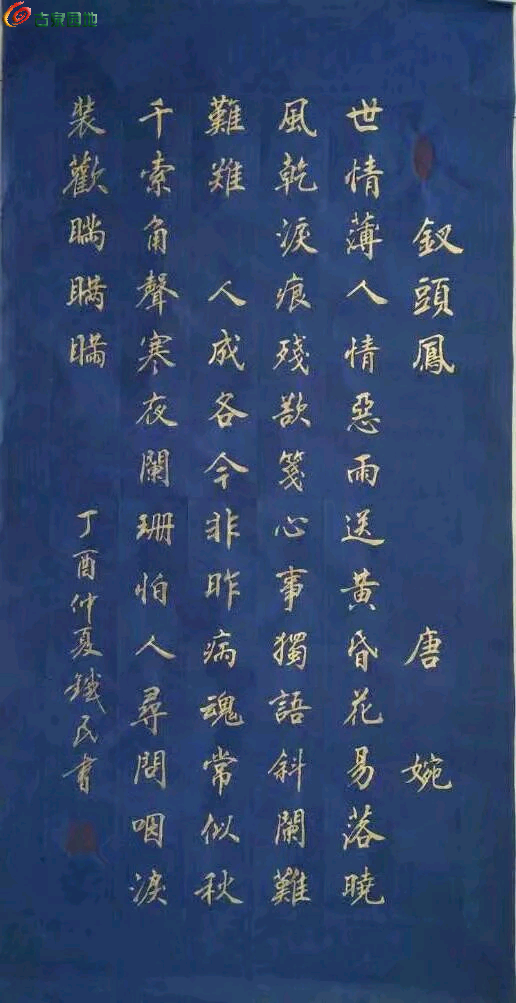 古家园地
釵頭鳳 唐婉
世情薄人情惡雨送黃昏花易落曉
風乾淚痕殘欲箋心事獨語斜闌難
難難 人成各今非昨病魂常似秋
千索角聲寒夜闌珊怕人尋問咽淚
裝歡瞞瞞瞞
丁酉仲夏鐵民書